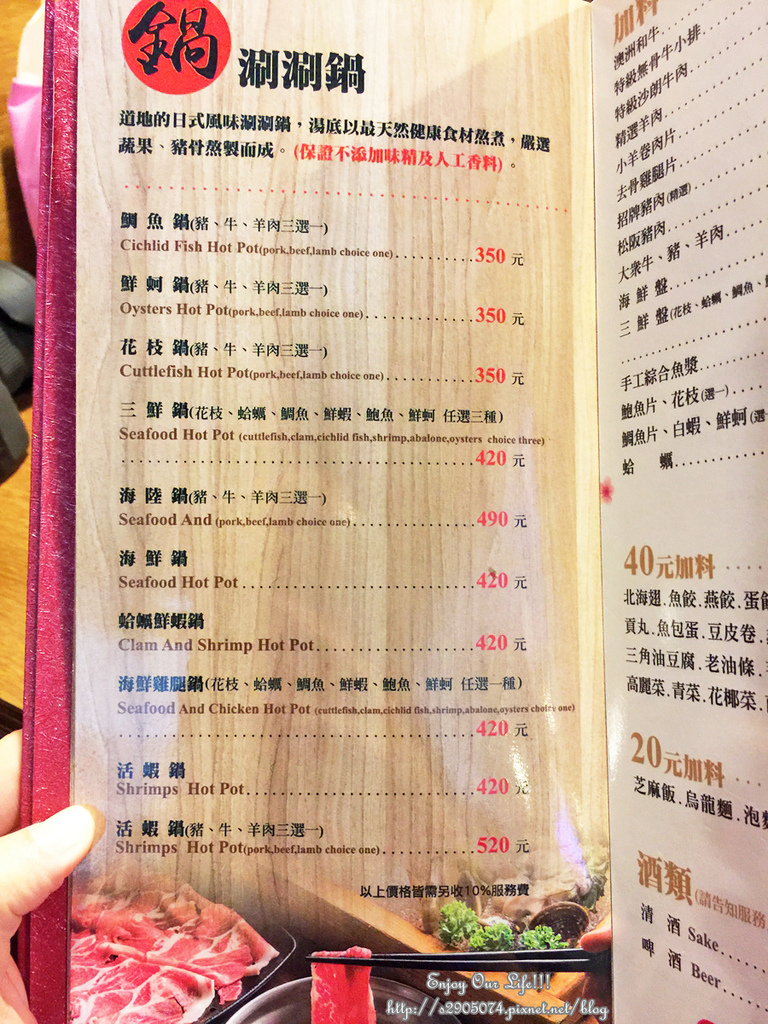 鍋 涮涮鍋
道地的日式風味涮涮鍋，湯底以最天然健康食材熬煮，嚴選
蔬果、豬骨熬製而成。(保證不添加味精及人工香料)。
鯛魚鍋(豬、牛、羊肉三選一)
Cichlid Fish Hot Pot(pork,beef,lamb choice one)..........350 元
鮮蚵鍋(豬、牛、羊肉三選一)
Oysters Hot Pot(pork,beef,lamb choice one)..............350 元
花枝鍋(豬、牛、羊肉三選一)
Cuttlefish Hot Pot(pork,beef,lamb choice one)...........350 元
三鮮鍋(花枝、蛤蠣、鯛魚、鮮蝦、鮑魚、鮮蚵 任選三種)
Seafood Hot Pot (cuttlefish,clam,cichlid fish,shrimp,abalone,oysters choice three)
............................................420 元
海陸鍋(豬、牛、羊肉三選一)
Seafood And (pork,beef,lamb choice one)................490 元
海鮮鍋
Seafood Hot Pot.............................420 元
蛤蠣鮮蝦鍋
Clam And Shrimp Hot Pot....................420 元
海鮮雞腿鍋(花枝、蛤蠣、鯛魚、鮮蝦、鮑魚、鮮蚵 任選一種)
Seafood And Chicken Hot Pot (cuttlefish,clam,cichlid fish,shrimp,abalone,oysters choice one)
............................................420 元
活蝦鍋
Shrimps Hot Pot............................420 元
活蝦鍋(豬、牛、羊肉三選一)
Shrimps Hot Pot(pork,beef,lamb choice one).............520 元
以上價格皆需另收10%服務費
加料
澳洲和牛
特級無骨牛小排
特級沙朗牛肉
精選羊肉
小羊卷肉片
去骨雞腿片
招牌豬肉(精選)
松阪豬肉
大衆牛、豬、羊肉
海鮮盤
三鮮盤(花枝、蛤蠣、鯛魚、
手工綜合魚漿
鮑魚片、花枝(選一)
鯛魚片、白蝦、鮮蚵(選
蛤蠣
40元加料
北海翅.魚餃.燕餃.蛋
貢丸.魚包蛋.豆皮卷.
三角油豆腐.老油條.
高麗菜.青菜.花椰菜.
20元加料
芝麻飯.烏龍麵.泡
酒類(請告知服務
清酒 Sake
啤酒 Beer
Enjoy Our Life!!!
http://s2905074.pixnet.net/blog